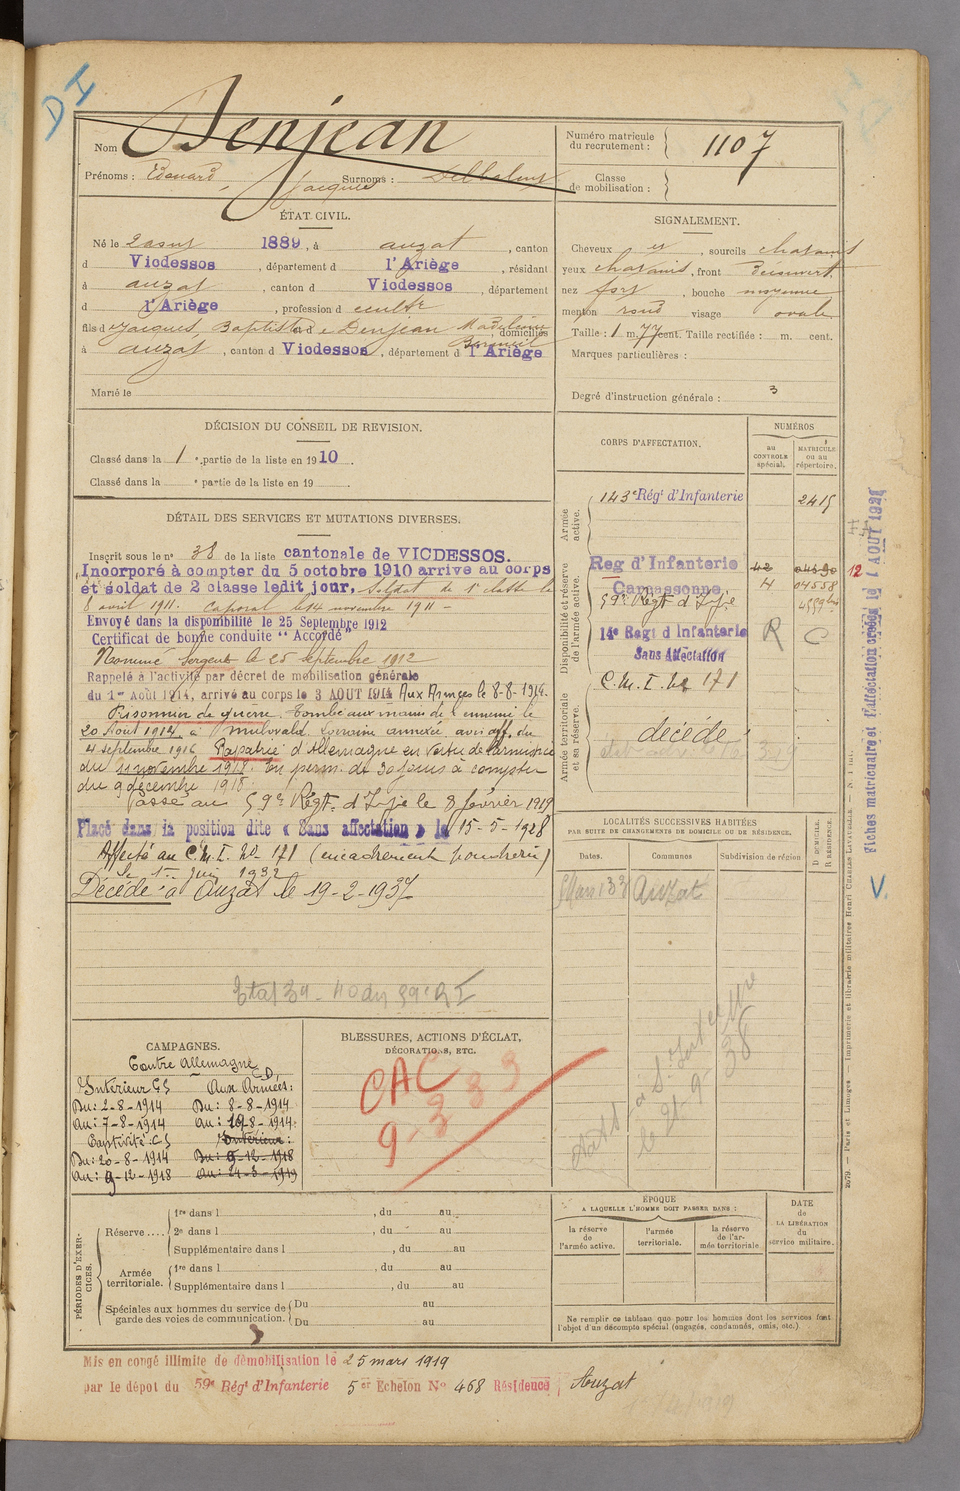 D I
Nom Denjean
Prénoms : Edouard, Jacques Surnoms :
Numéro matricule du recrutement : 1107
Classe de mobilisation :
ÉTAT CIVIL.
Né le 2 aout 1889, à auzat, canton
d Vicdessos, département d l'Ariège, résidant
à auzat, canton d Vicdessos, département
d l'Ariège, profession d cultr
fils d Jacques, Baptiste et d e Denjean Madeleine domiciliés
à auzat, canton d Vicdessos, département d l'Ariège
Marié le
SIGNALEMENT.
Cheveux et, sourcils chatains
yeux chatains, front découvert
nez fort, bouche moyenne
menton rond visage ovale
Taille : 1 m. 77 cent. Taille rectifiée : m. cent.
Marques particulières :
Degré d'instruction générale : 3
DÉCISION DU CONSEIL DE REVISION.
Classé dans la 1e partie de la liste en 1910.
Classé dans la e partie de la liste en 19 .
DÉTAIL DES SERVICES ET MUTATIONS DIVERSES.
Inscrit sous le n° 38 de la liste cantonale de VICDESSOS.
Incorporé à compter du 5 octobre 1910 arrivé au corps
et soldat de 2 classe ledit jour. Soldat de 1e classe le
8 avril 1911. Caporal le 14 novembre 1911 -
Envoyé dans la disponibilité le 25 Septembre 1912
Certificat de bonne conduite "Accordé"
Nommé Sergent le 25 septembre 1912
Rappelé à l'activité par décret de mobilisation générale
du 1er Août 1914, arrivé au corps le 3 AOUT 1914 Aux Armées le 8-8-1914.
Prisonnier de guerre. Tombé aux mains de l'ennemi le
20 Aout 1914, à Lorraine annexée avis off. du
4 septembre 1916 Rapatrié d'Allemagne en vertu de l'armistice
du 11 novembre 1918. En perm. de 30 jours à compter
du 9 décembre 1918
Passé au 59e Régt. d'Infie le 8 février 1919
Placé dans la position dite « Sans affectation » le 15-5-1928
Affecté au C.M.I. No 171 (encadrement poudrerie)
le 1er juin 1932
Décédé à Auzat le 19-2-1937
Etat 39 - 40 du 59e R I
CORPS D'AFFECTATION.
NUMÉROS
au CONTROLE spécial.
MATRICULE ou au répertoire.
Armée active.
143e Régt d'Infanterie 2415
Disponibilité et réserve de l'armée active.
Reg d'Infanterie
Carcassonne
04558
59e Régt d'Infie
14e Regt d Infanterie R C
Sans Affectation
Armée territoriale et sa réserve.
C.M.I. No 171
décédé
12
Fiches matriculaire et d'affectation créées le 1 AOUT 1928
V.
LOCALITÉS SUCCESSIVES HABITÉES
PAR SUITE DE CHANGEMENTS DE DOMICILE OU DE RÉSIDENCE.
Dates. Communes Subdivision de région D DOMICILE. R RÉSIDENCE.
Auzat
CAMPAGNES.
Contre Allemagne
Intérieur C S
Du : 2-8-1914
Au : 7-8-1914
Captivité : C S
Du : 20-8-1914
Au : 9-12-1918
Aux Armées : C D
Du : 8-8-1914
Au : 19-8-1914
Intérieur :
Du : 9-12-1918
Au : 24-3-1919
BLESSURES, ACTIONS D'ÉCLAT,
DÉCORATIONS, ETC.
CAC
PÉRIODES D'EXERCICES.
Réserve....
1re dans l , du au
2e dans l , du au
Supplémentaire dans l , du au
Armée territoriale.
1re dans l , du au
Supplémentaire dans l , du au
Spéciales aux hommes du service de garde des voies de communication.
Du au
Du au
ÉPOQUE
A LAQUELLE L'HOMME DOIT PASSER DANS :
la réserve de l'armée active.
l'armée territoriale.
la réserve de l'armée territoriale
DATE de LA LIBÉRATION du service militaire.
Ne remplir ce tableau que pour les hommes dont les services font
l'objet d'un décompte spécial (engagés, condamnés, omis, etc.).
Paris et Limoges. — Imprimerie et librairie militaires Henri CHARLES-LAVAUZELLE.
Mis en congé illimité de démobilisation le 25 mars 1919
par le dépot du 59e Régt d'Infanterie 5er Echelon No 468 Résidence Auzat